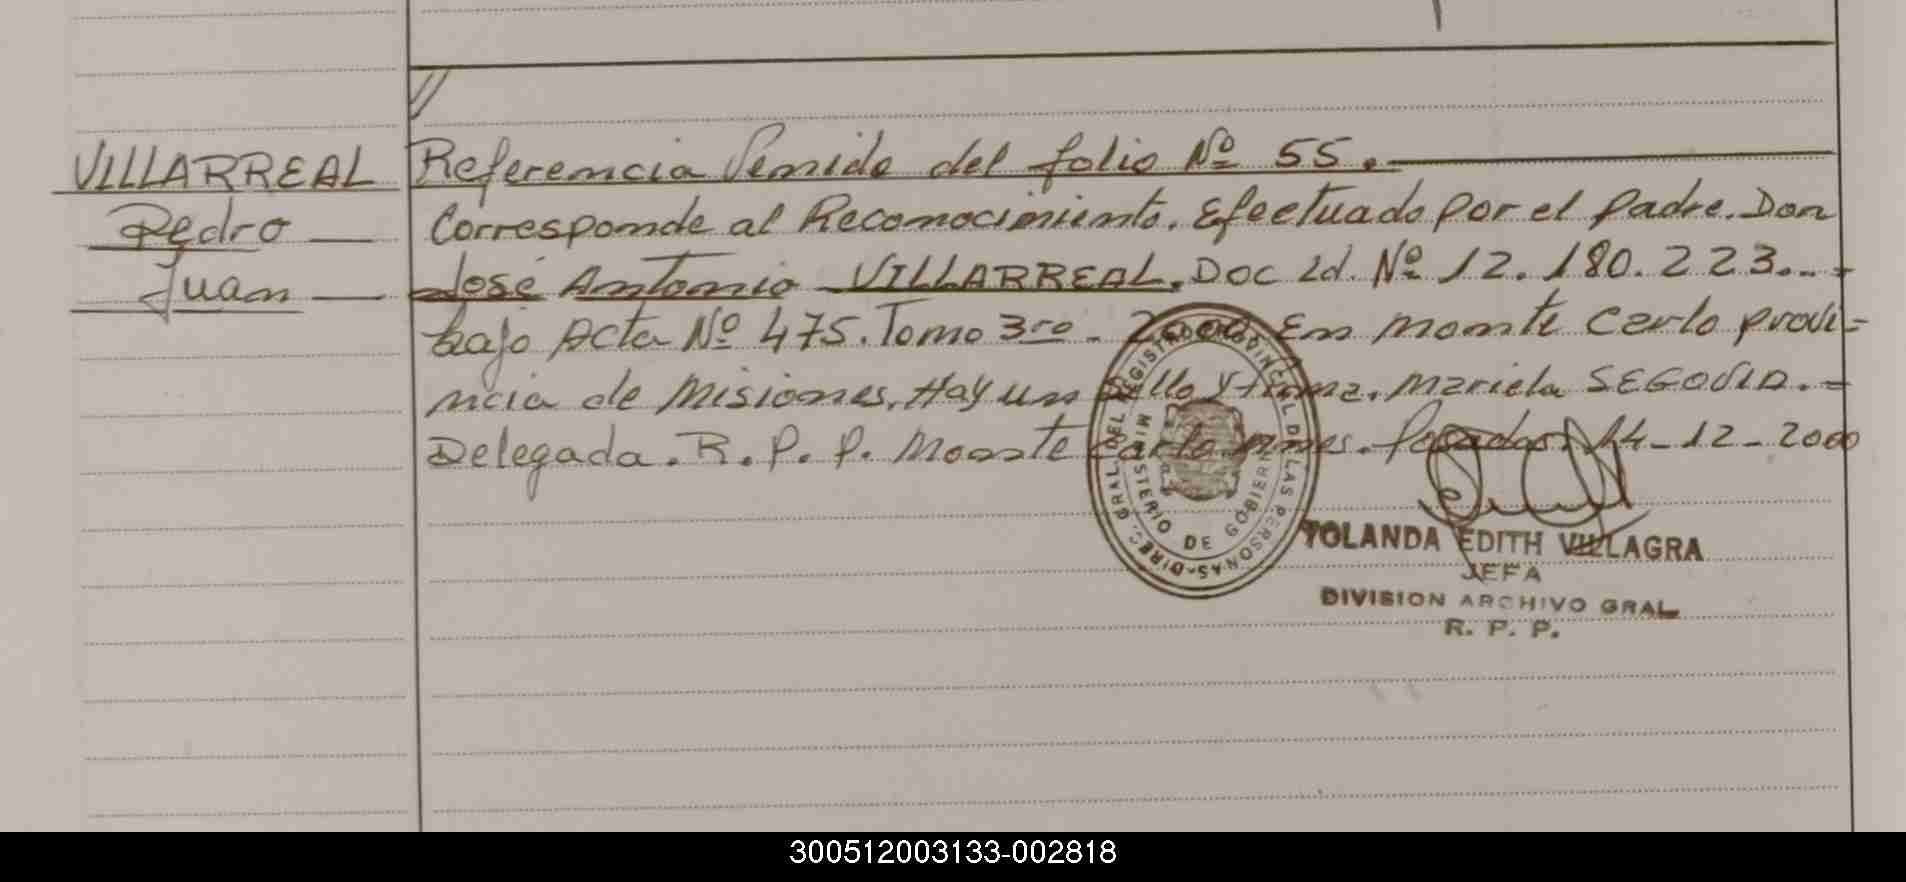 VILLARREAL
Pedro
Juan
Referencia Venida del folio Nº 55.
Corresponde al Reconocimiento. Efectuado por el padre. Don
José Antonio VILLARREAL. Doc Id. Nº 12.180.223...-
bajo Acta Nº 475. Tomo 3ro - 2000. En Monte Carlo provi-
ncia de Misiones. Hay un sello y firma. Mariela SEGOVIA.-
Delegada. R. P. P. Monte Carlo Mnes. Posadas 14-12-2000
DIREC. GRAL. DEL REGISTRO PROVINCIAL DE LAS PERSONAS
MINISTERIO DE GOBIERNO
YOLANDA EDITH VILLAGRA
JEFA
DIVISION ARCHIVO GRAL
R. P. P.
300512003133-002818